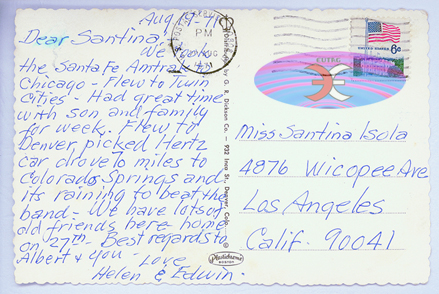 Aug 19-71
Dear Santina,
We took
the Santa Fe Amtrak to
Chicago - Flew to Twin
Cities - Had great time
with son and family
for week. Flew to
Denver, picked Hertz
car drove 70 miles to
Colorado Springs and
its raining to beat the
band - We have lots of
old friends here - home
on 27th - Best regards to
Albert & you - Love
Helen & Edwin.
PM
AUG
UNITED STATES
6c
by O. R. Dickson Co. - 932
Plastichrome
BOSTON
Miss Santina Isola
4876 Wicopee Ave
Los Angeles
Calif. 90041